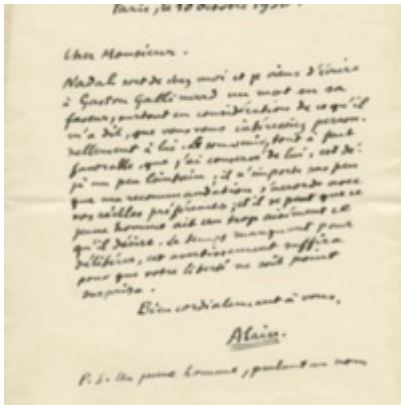 Paris, le 10 octobre 19
Cher Monsieur.
Nadal sort de chez moi et je viens d'écrire
à Gaston Gallimard un mot en sa
faveur, surtout en considération de ce qu'il
m'a dit, que vous vous intéressiez person-
nellement à lui. Le souvenir, tout à fait
favorable, que j'ai conservé de lui, est dé-
jà un peu lointain; il n'importe pas peu
que ma recommandation s'accorde avec
vos réelles préférences; et il se peut que ce
jeune homme ait cru trop aisément ce
qu'il désire. Le temps manquant pour
délibérer, cet avertissement suffira
pour que votre liberté ne soit point
surprise.
Bien cordialement à vous.
Alain.
P.S. Un jeune homme, portant un nom